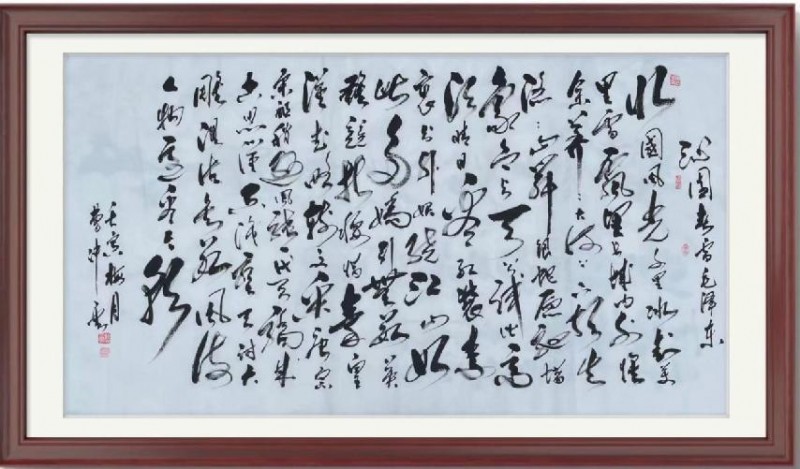 沁园春雪毛泽东
北國风光千里冰封万
里雪飘望长城内外惟
余莽莽大河上下顿失
滔滔山舞银蛇原驰蜡
象欲与天公试比高
须晴日看红装素
裹分外妖娆江山如
此多娇引無数英
雄竞折腰惜秦皇
汉武略输文采唐宗
宋祖稍逊风骚一代天骄成
吉思汗只识弯弓射大
雕俱往矣数风流
人物还看今朝
壬寅梅月